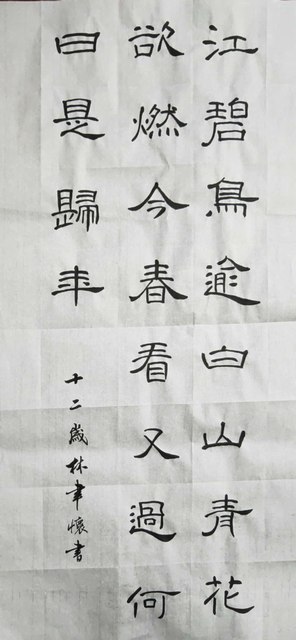 江碧鳥逾白山青花
欲燃今春看又過何
日是歸年
十二歲林聿懷書